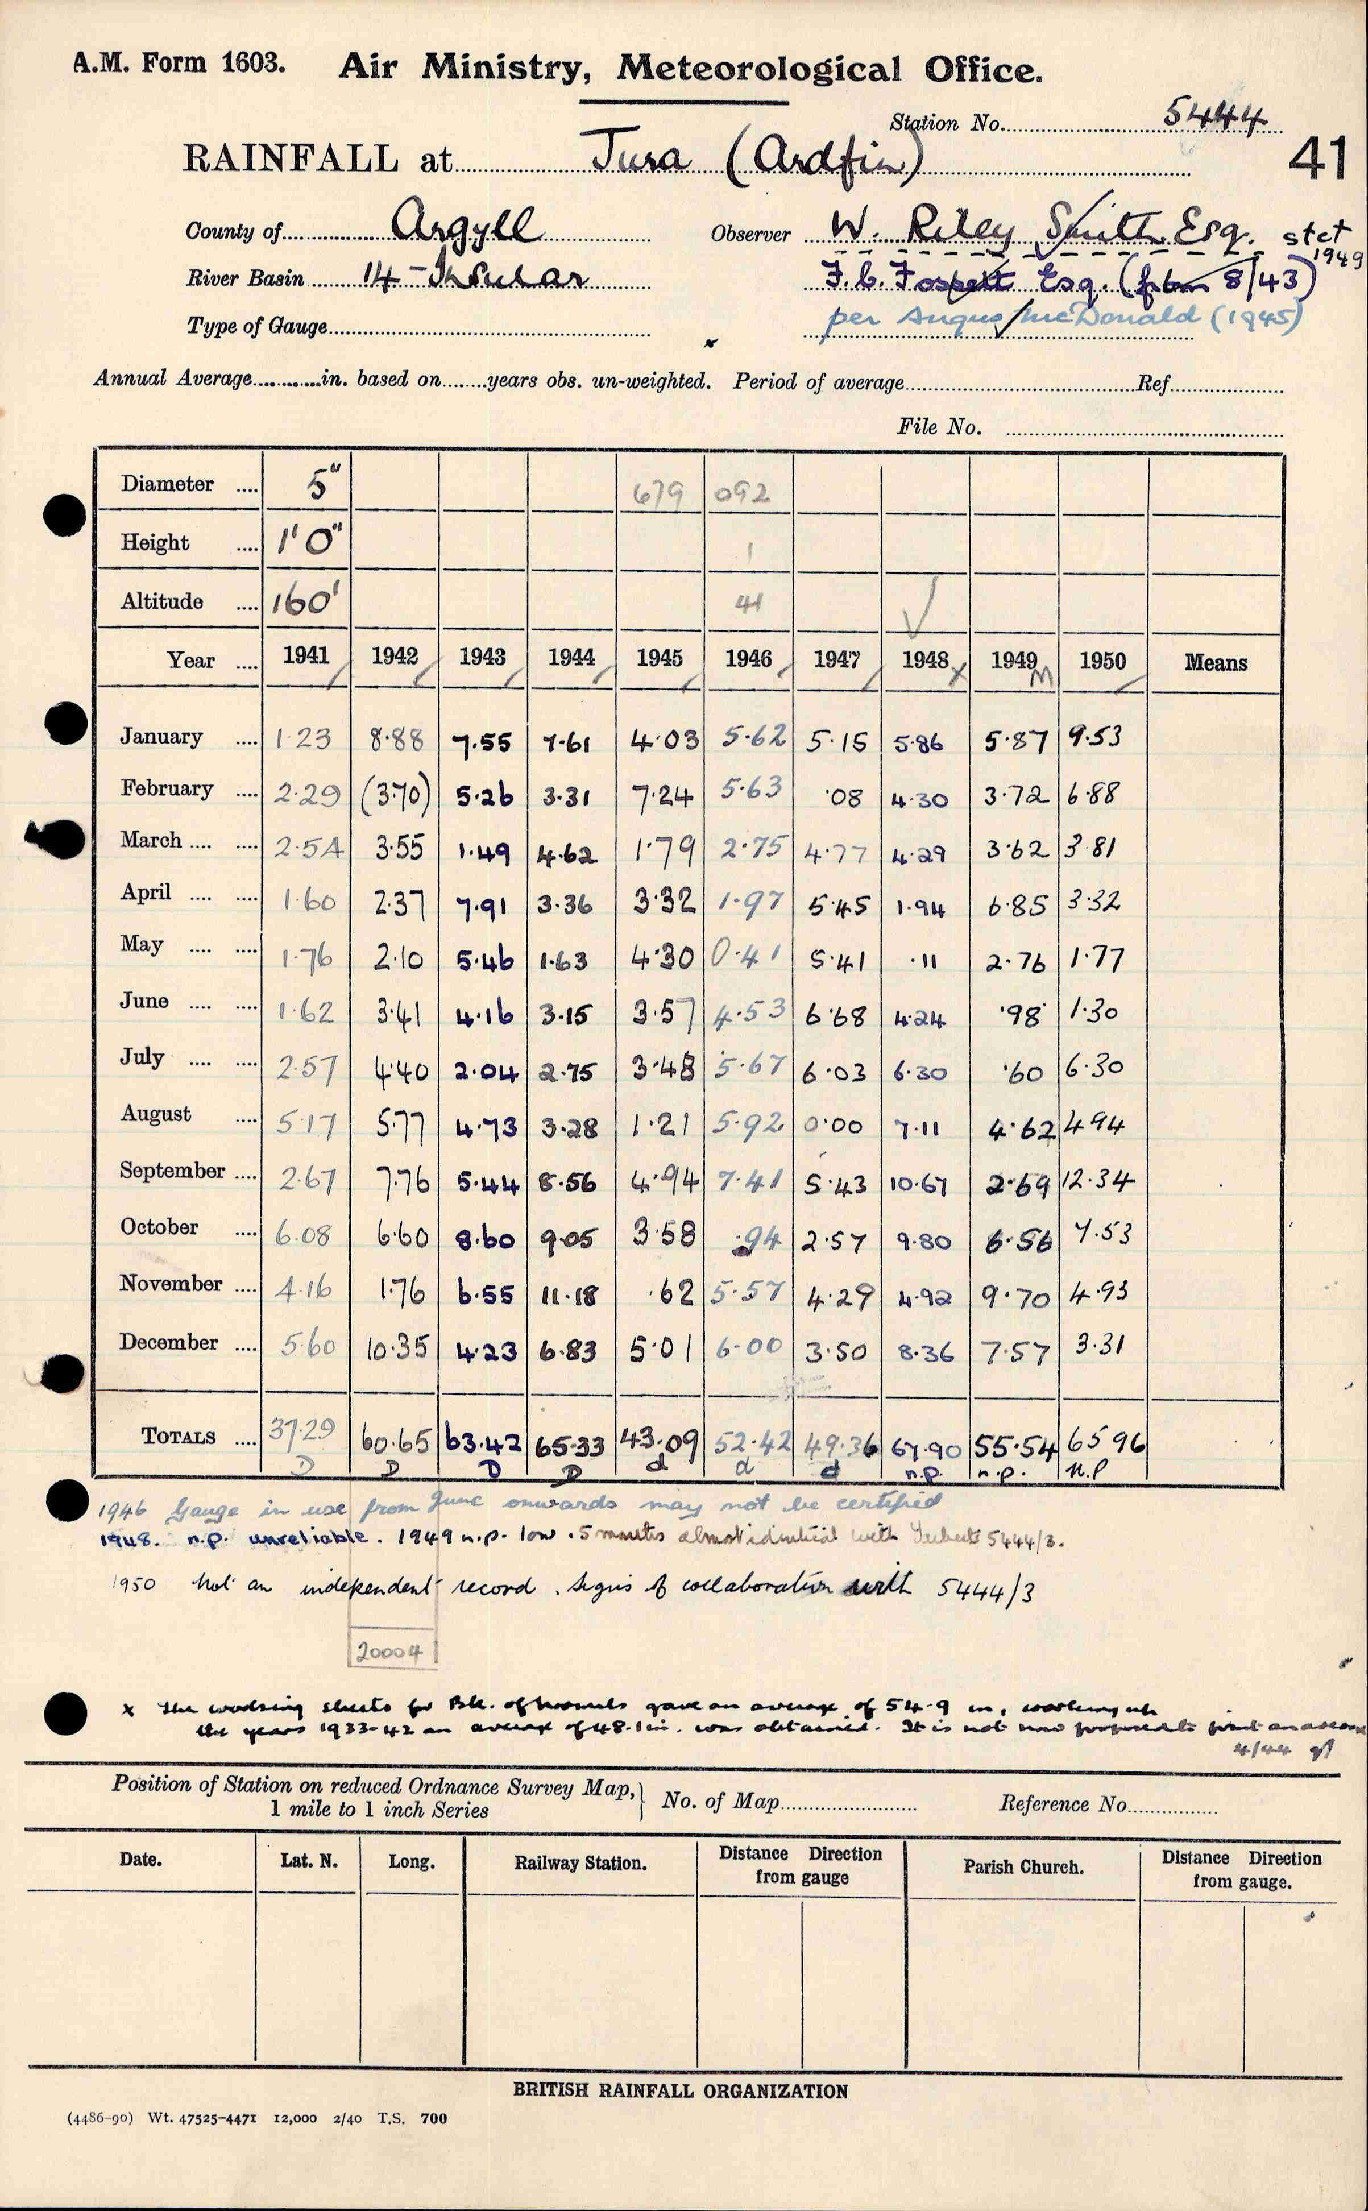 A.M. Form 1603. Air Ministry, Meteorological Office.
Station No. 5444
RAINFALL at Jura (Ardfin) 41
County of Argyll Observer W. Riley Smith Esq. stet 1949
River Basin 14 - Insular F.C. Fospett Esq. (from 8/43)
Type of Gauge per Angus McDonald (1945)
x
Annual Average in. based on years obs. un-weighted. Period of average Ref.
File No.
Diameter .... 5" 679 092
Height .... 1' 0" 1
Altitude .... 160' 41 ✓
Year .... 1941 1942 1943 1944 1945 1946 1947 1948 x 1949 m 1950 Means
January .... 1.23 8.88 7.55 7.61 4.03 5.62 5.15 5.86 5.87 9.53
February .... 2.29 (3.70) 5.26 3.31 7.24 5.63 .08 4.30 3.72 6.88
March .... .... 2.54 3.55 1.49 4.62 1.79 2.75 4.77 4.29 3.62 3.81
April .... .... 1.60 2.37 7.91 3.36 3.32 1.97 5.45 1.94 6.85 3.32
May .... .... 1.76 2.10 5.46 1.63 4.30 0.41 5.41 .11 2.76 1.77
June .... .... 1.62 3.41 4.16 3.15 3.57 4.53 6.68 4.24 .98 1.30
July .... .... 2.57 4.40 2.04 2.75 3.48 5.67 6.03 6.30 .60 6.30
August .... 5.17 5.77 4.73 3.28 1.21 5.92 0.00 7.11 4.62 4.94
September .... 2.67 7.76 5.44 8.56 4.94 7.41 5.43 10.67 2.69 12.34
October .... 6.08 6.60 8.60 9.05 3.58 .94 2.57 9.80 6.56 7.53
November .... 4.16 1.76 6.55 11.18 .62 5.57 4.29 4.92 9.70 4.93
December .... 5.60 10.35 4.23 6.83 5.01 6.00 3.50 8.36 7.57 3.31
TOTALS .... 37.29 60.65 63.42 65.33 43.09 52.42 49.36 67.90 55.54 65 96
D D D D d d d n.p. n.p. n.p
1946 Gauge in use from June onwards may not be certified
1948. n.p. unreliable. 1949 n.p. low. 5 months almost identical with 5444/3.
1950 Not an independent record. Signs of collaboration with 5444/3
20004
x The working sheets for Bk. of Normals gave an average of 54.9 in, working up
the years 1933-42 an average of 48.1 in. was obtained. It is not now proposed to print an average
4/44
Position of Station on reduced Ordnance Survey Map, 1 mile to 1 inch Series } No. of Map Reference No.
Date. Lat. N. Long. Railway Station. Distance Direction from gauge Parish Church. Distance Direction from gauge.
BRITISH RAINFALL ORGANIZATION
(4486-90) Wt. 47525-4471 12,000 2/40 T.S. 700